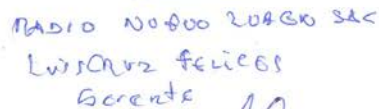 RADIO NUEVO LUAGO SAC
Luis Cruz Felices
Gerente